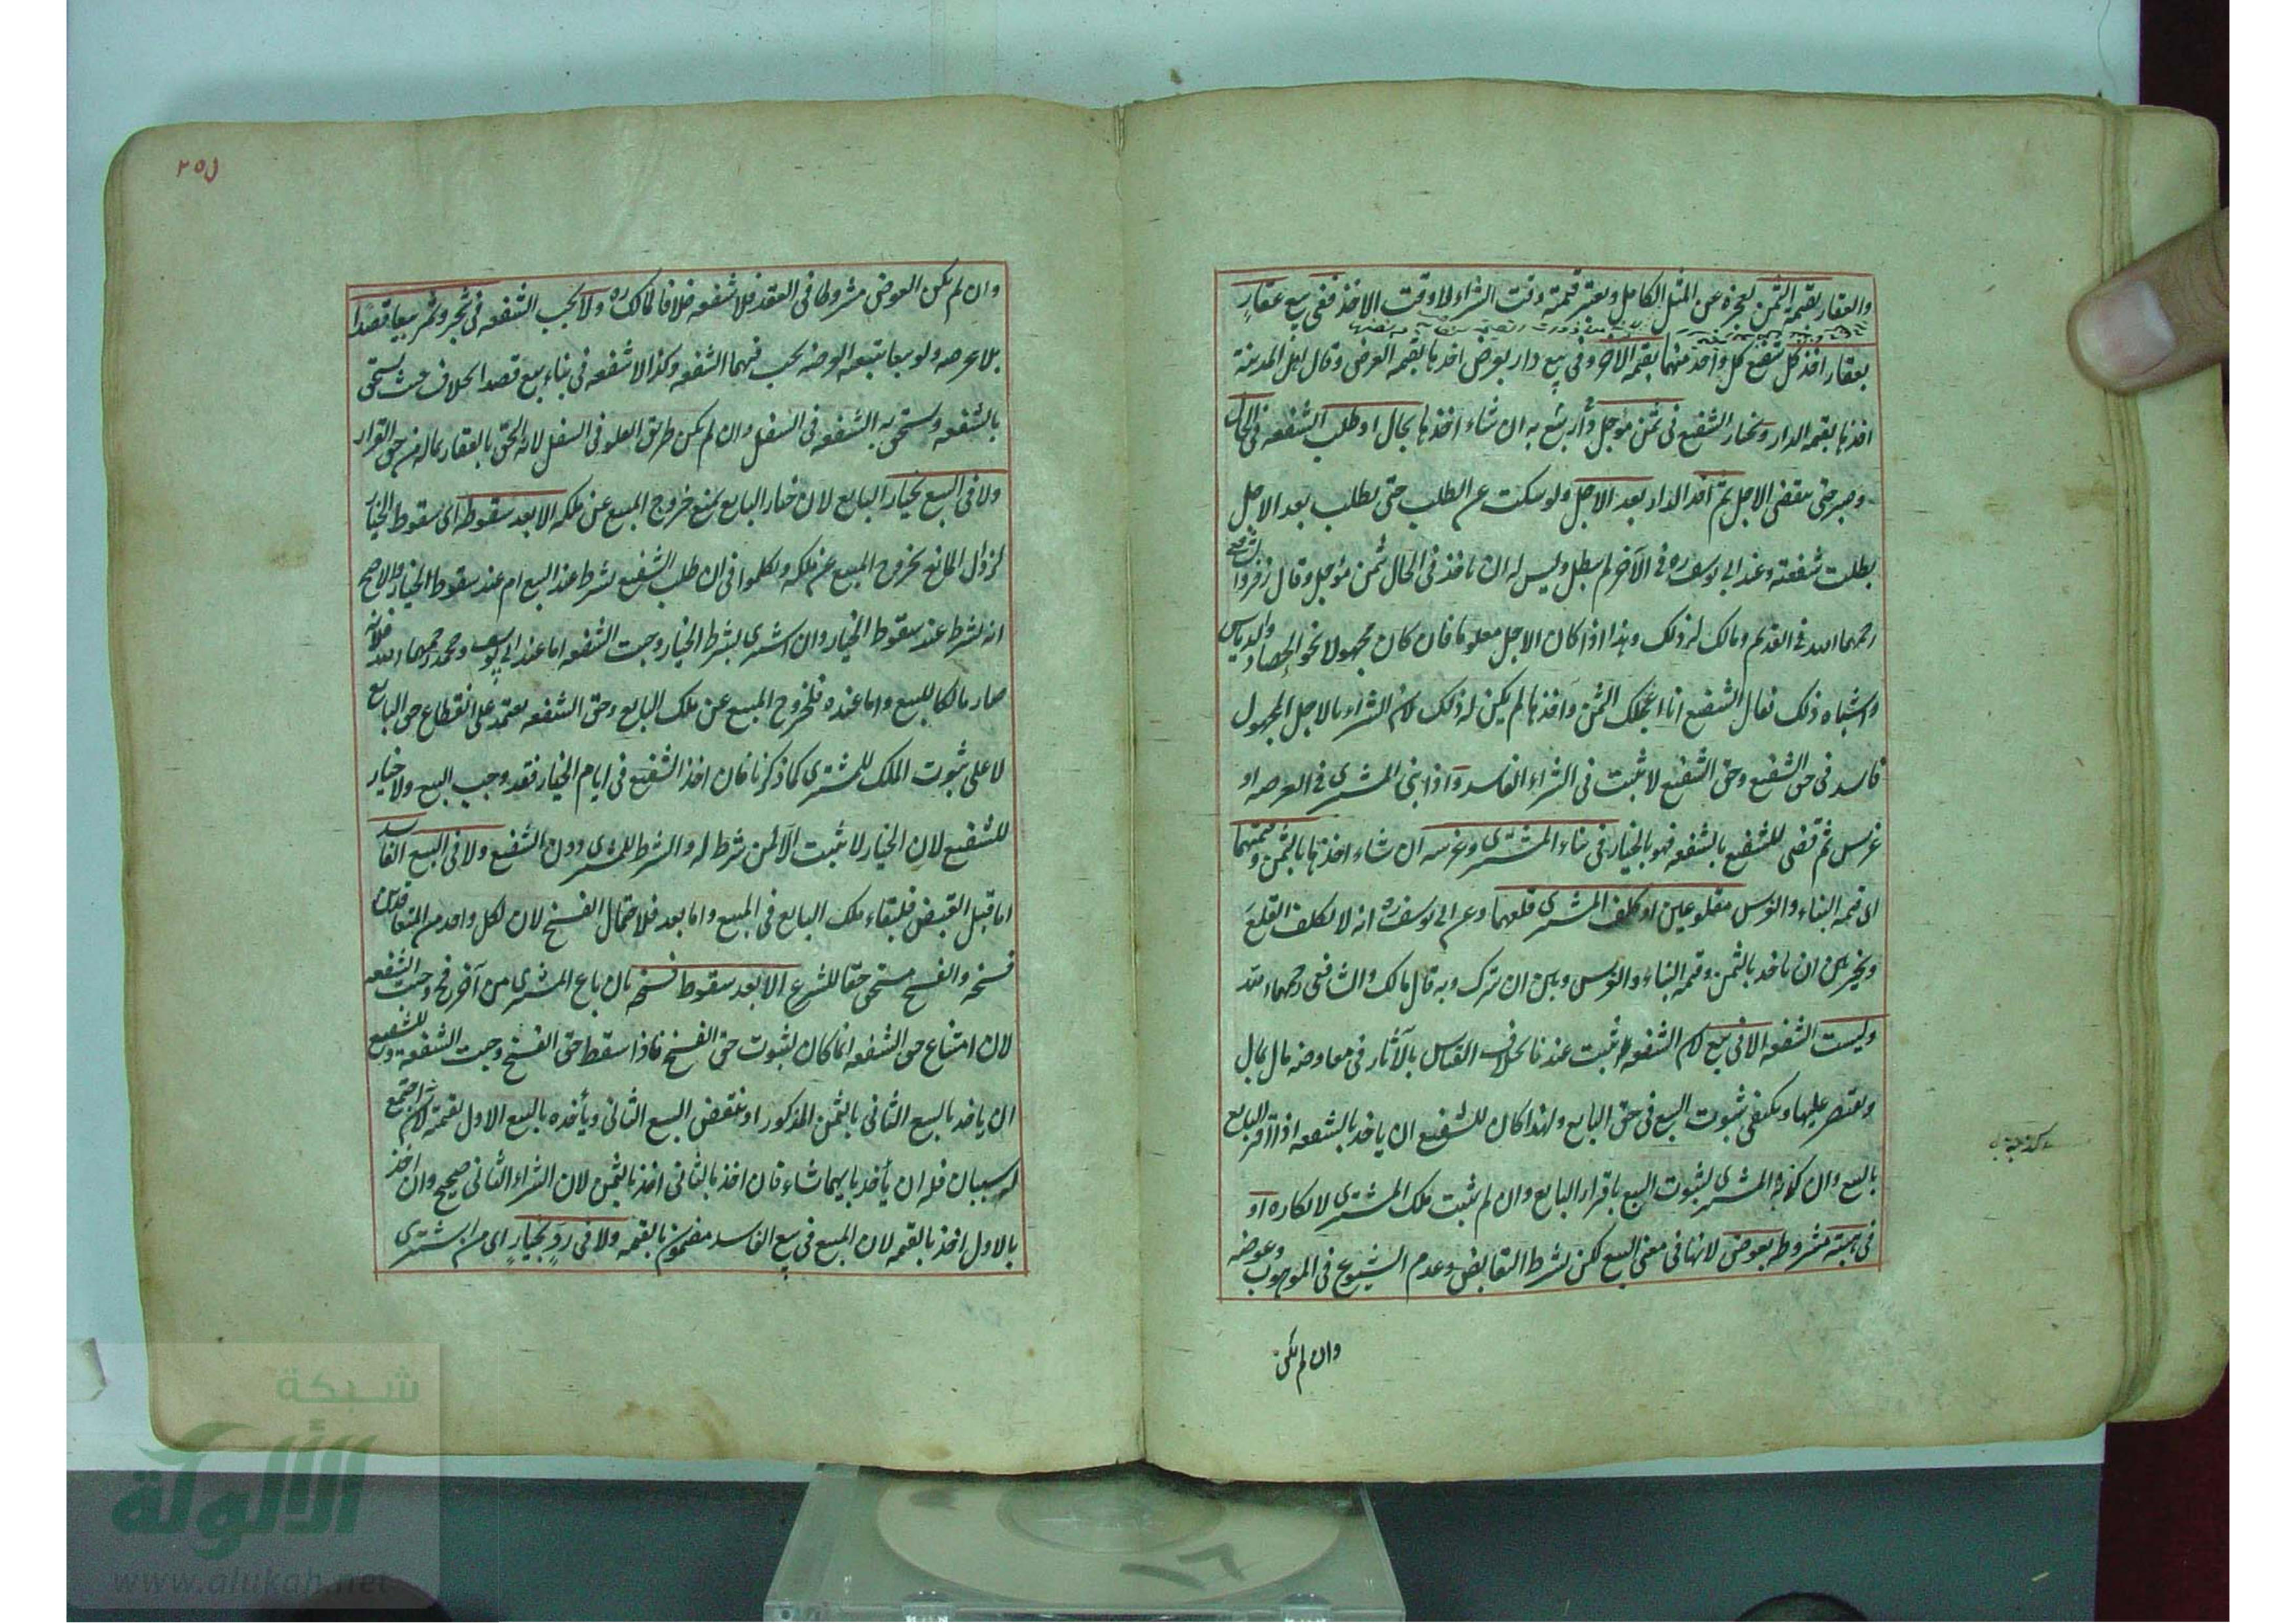 والعقار بقيمة الثمن لعجزه عن المثل الكامل ويعتبر قيمته وقت الشراء لا وقت الاخذ ففى بيع عقارٍ
بعقار اخذ كل شفيع كل واحد منهما بقيمة الاخر وفى بيع دار بعوض اخذها بقيمة العرض وقال اهل المدينة
اخذها بقيمة الدار ويختار الشفيع فى ثمن مؤجل وأربع به ان شاء اخذها بحال او طلب الشفعه فى الحال
وصبر حتى ينقضى الاجل ثم اخذ الدار بعد الاجل ولو سكت عن الطلب حتى يطلب بعد الاجل
بطلت شفعته وعند ابى يوسف ره فى الآخر لم يبطل وليس له ان ياخذ فى الحال بثمن مؤجل وقال زفر والشافعى
رحمهما الله فى القديم ومالك له ذلك وهذا اذا كان الاجل معلوما فان كان مجهولا نحو الحصاد والدياس
واشباه ذلك فقال الشفيع انا اعجل الثمن وآخذها لم يكن له ذلك لان الشراء بالاجل المجهول
فاسد فى حق الشفيع وحق الشفيع لا يثبت فى الشراء الفاسد واذا بنى المشترى فى العرصه او
غرس ثم قضى للشفيع بالشفعه فهو بالخيار فى بناء المشترى وغرسه ان شاء اخذها بالثمن وقيمتهما
اى قيمة البناء والغرس مقلوعين او كلف المشترى قلعهما وعن ابى يوسف ره انه لا يكلف القلع
ويخير بين ان ياخذ بالثمن وقيمة البناء والغرس وبين ان يترك وبه قال مالك والشافعى رحمهما الله
وليست الشفعه الا فى بيع لان الشفعه يثبت عندنا بخلاف القياس بالآثار فى معاوضه مال بمال
ويقتصر عليها ويكتفى بثبوت البيع فى حق البايع ولهذا كان للشفيع ان ياخذ بالشفعه اذا اقر البايع
بالبيع وان كذبه المشترى لثبوت البيع باقرار البايع وان لم يثبت ملك المشترى لانكاره او
فى هبته مشروطه بعوض لانها فى معنى البيع لكن بشرط التقابض وعدم الشيوع فى الموهوب وعوضه
وان لم يكن
٢٥١
وان لم يكن العوض مشروطا فى العقد فلا شفعه خلافا لمالك ره ولا يجب الشفعه فى شجر وثمر بيعا قصدا
بلا عرصه ولو بيعا بتبعه العرصه يجب فيهما الشفعه وكذا لا شفعه فى بناء بيع قصدا بخلاف حيث يستحق
بالشفعه ويستحق به الشفعه فى السفل وان لم يكن طريق العلو فى السفل لانه التحق بالعقار بماله من حق القرار
ولا فى البيع بخيار البايع لان خيار البايع يمنع خروج المبيع عن ملكه الا بعد سقوطه اى سقوط الخيار
لزوال المانع بخروج المبيع عن ملكه وتكلموا فى ان طلب الشفيع يشترط عند البيع ام عند سقوط الخيار والاصح
انه يشترط عند سقوط الخيار وان اشترى بشرط الخيار وجبت الشفعه اما عند ابى يوسف ومحمد رحمهما الله فلانه
صار مالكا للبيع واما عنده فلخروج المبيع عن ملك البايع وحق الشفعه يعتمد على انقطاع حق البايع
لا على ثبوت الملك للمشترى كما ذكرنا فان اخذ الشفيع فى ايام الخيار فقد وجب البيع ولا خيار
للشفيع لان الخيار لا يثبت الا لمن شرط له والشرط للمشترى دون الشفيع ولا فى البيع الفاسد
اما قبل القبض فلبقاء ملك البايع فى المبيع واما بعد فلاحتمال الفسخ لان لكل واحد من المتعاقدين
فسخه والفسخ مستحق حقا للشرع الا بعد سقوط فسخه بان باع المشترى من آخر فح وجبت الشفعه
لان امتناع حق الشفعه انما كان لثبوت حق الفسخ فاذا سقط حق الفسخ وجبت الشفعه وللشفيع
ان ياخذ بالبيع الثانى بالثمن المذكور او ينتقض البيع الثانى ويأخذه بالبيع الاول بقيمة لانه اجتمع
له سببان فله ان يأخذ بايهما شاء فان اخذ بالثانى اخذ بالثمن لان الشراء الثانى صحيح وان اخذ
بالاول اخذ بالقيمه لان المبيع فى بيع الفاسد مضمون بالقيمه ولا فى ردٍ بخيارٍ اى من اشترى
شبكة
الألوكة
www.alukah.net